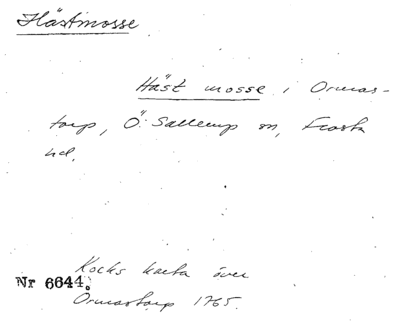 Hästmosse
Häst mosse i Ormas-
torp, Ö. Sallerup sn, Frosta
hd.
Kocks karta över
Nr 6644.
Ormastorp 1765.